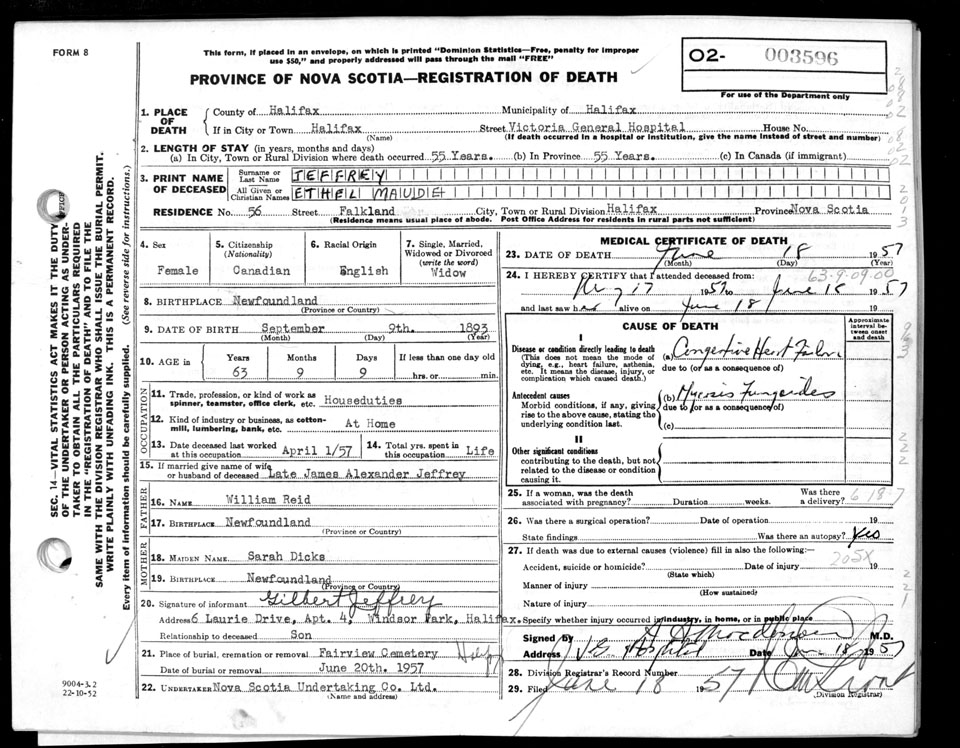 FORM 8
This form, if placed in an envelope, on which is printed "Dominion Statistics—Free, penalty for improper
use $50," and properly addressed will pass through the mail "FREE"
PROVINCE OF NOVA SCOTIA—REGISTRATION OF DEATH
O2- 003596
For use of the Department only
1. PLACE OF DEATH County of Halifax Municipality of Halifax
If in City or Town Halifax Street Victoria General Hospital House No.
(Name) (If death occurred in a hospital or institution, give the name instead of street and number)
2. LENGTH OF STAY (in years, months and days)
(a) In City, Town or Rural Division where death occurred 55 Years. (b) In Province 55 Years. (c) In Canada (if immigrant)
3. PRINT NAME OF DECEASED Surname or Last Name JEFFREY
All Given or Christian Names ETHEL MAUDE
RESIDENCE No. 56 Street Falkland City, Town or Rural Division Halifax Province Nova Scotia
(Residence means usual place of abode. Post Office Address for residents in rural parts not sufficient)
4. Sex Female
5. Citizenship (Nationality) Canadian
6. Racial Origin English
7. Single, Married, Widowed or Divorced (write the word) Widow
8. BIRTHPLACE Newfoundland
(Province or Country)
9. DATE OF BIRTH September 9th. 1893
(Month) (Day) (Year)
10. AGE in Years Months Days If less than one day old
63 9 9 hrs. or min.
OCCUPATION
11. Trade, profession, or kind of work as spinner, teamster, office clerk, etc. Houseduties
12. Kind of industry or business, as cotton-mill, lumbering, bank, etc. At Home
13. Date deceased last worked at this occupation April 1/57 14. Total yrs. spent in this occupation Life
15. If married give name of wife or husband of deceased Late James Alexander Jeffrey
FATHER
16. NAME William Reid
17. BIRTHPLACE Newfoundland
(Province or Country)
MOTHER
18. MAIDEN NAME Sarah Dicks
19. BIRTHPLACE Newfoundland
(Province or Country)
20. Signature of informant Gilbert Jeffrey
Address 6 Laurie Drive, Apt. 4, Windsor Park, Halifax.
Relationship to deceased Son
21. Place of burial, cremation or removal Fairview Cemetery
Date of burial or removal June 20th. 1957
22. UNDERTAKER Nova Scotia Undertaking Co. Ltd.
(Name and address)
MEDICAL CERTIFICATE OF DEATH
23. DATE OF DEATH June 18 1957
(Month) (Day) (Year)
24. I HEREBY CERTIFY that I attended deceased from: 63-9-09.00
17 1957 to June 18 1957
and last saw h alive on June 18
CAUSE OF DEATH
Approximate interval between onset and death
I
Disease or condition directly leading to death
(This does not mean the mode of dying, e.g., heart failure, asthenia, etc. It means the disease, injury, or complication which caused death.)
(a) Congestive Heart Failure
due to (or as a consequence of)
Antecedent causes
Morbid conditions, if any, giving rise to the above cause, stating the underlying condition last.
(b) Mycosis Fungoides
due to (or as a consequence of)
(c)
II
Other significant conditions
contributing to the death, but not related to the disease or condition causing it.
25. If a woman, was the death associated with pregnancy? Duration weeks. Was there a delivery? 6 18 7
26. Was there a surgical operation? Date of operation 19
State findings Was there an autopsy? Yes
27. If death was due to external causes (violence) fill in also the following:— 205X
Accident, suicide or homicide? Date of injury 19
(State which)
Manner of injury
(How sustained)
Nature of injury
Specify whether injury occurred in industry, in home, or in public place
Signed by M.D.
Address V G Hospital Date June 18 1957
28. Division Registrar's Record Number
29. Filed June 18 1957
(Division Registrar)
SEC. 14—VITAL STATISTICS ACT MAKES IT THE DUTY
OF THE UNDERTAKER OR PERSON ACTING AS UNDER-
TAKER TO OBTAIN ALL THE PARTICULARS REQUIRED
IN THE "REGISTRATION OF DEATH" AND TO FILE THE
SAME WITH THE DIVISION REGISTRAR WHO SHALL ISSUE THE BURIAL PERMIT.
WRITE PLAINLY WITH UNFADING INK. THIS IS A PERMANENT RECORD.
Every item of information should be carefully supplied. (See reverse side for instructions.)
9004-3.2
22-10-52